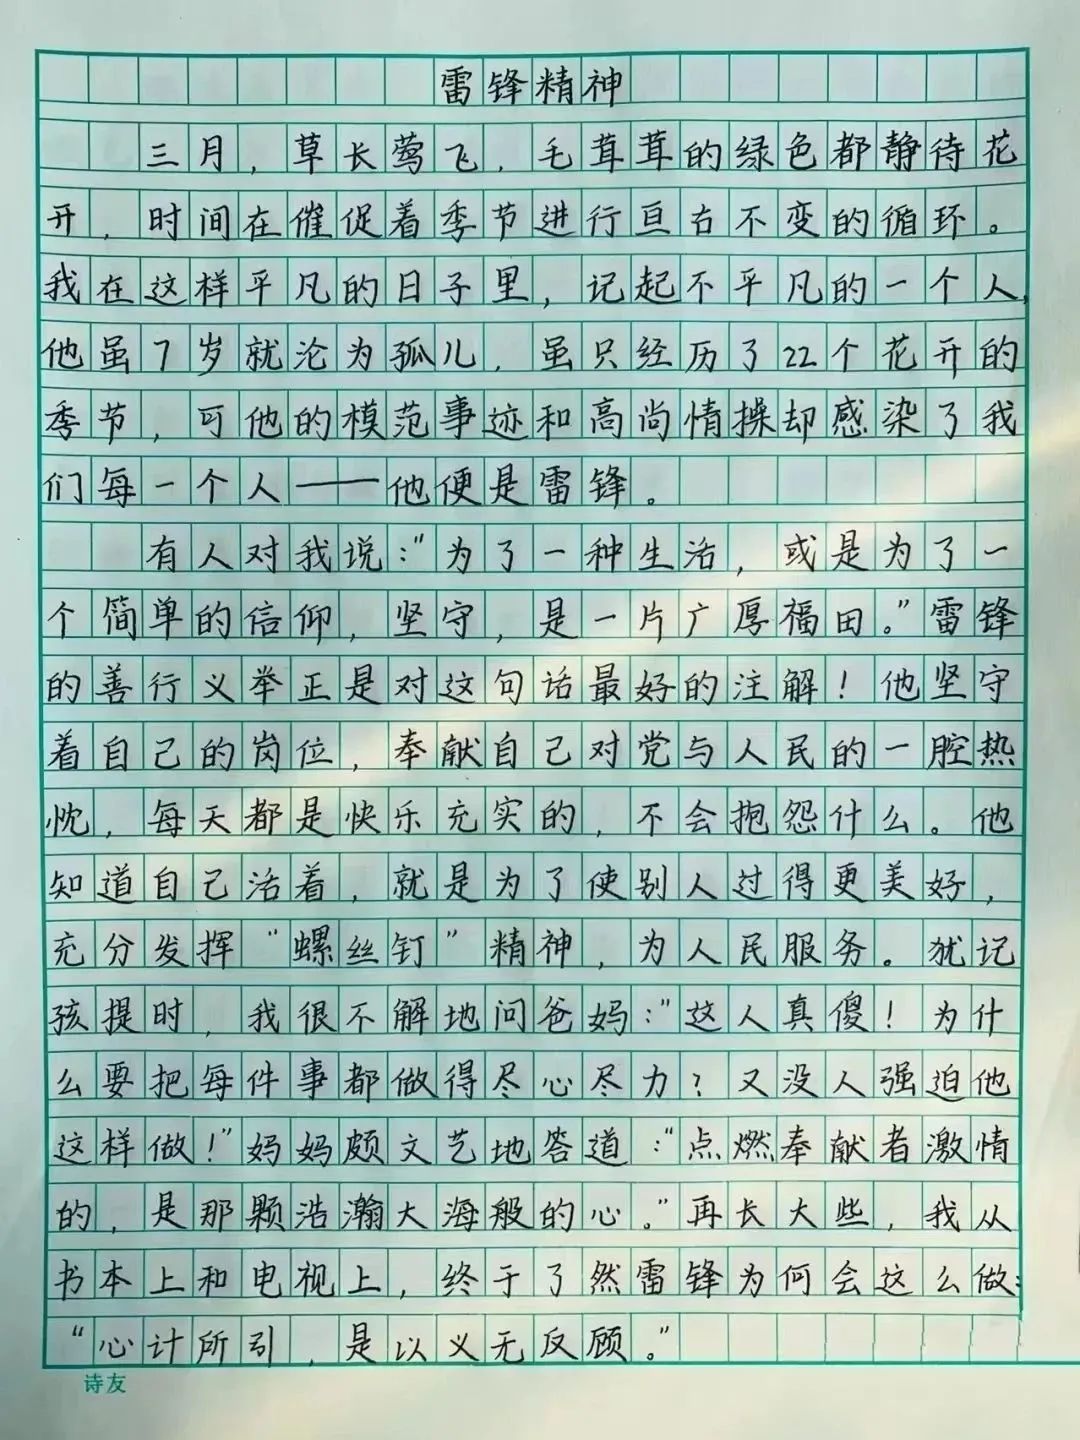 雷锋精神
三月，草长莺飞，毛茸茸的绿色都静待花
开，时间在催促着季节进行亘右不变的循环。
我在这样平凡的日子里，记起不平凡的一个人，
他虽7岁就沦为孤儿，虽只经历了22个花开的
季节，可他的模范事迹和高尚情操却感染了我
们每一个人——他便是雷锋。
有人对我说：“为了一种生活，或是为了一
个简单的信仰，坚守，是一片广厚福田。”雷锋
的善行义举正是对这句话最好的注解！他坚守
着自己的岗位，奉献自己对党与人民的一腔热
忱，每天都是快乐充实的，不会抱怨什么。他
知道自己活着，就是为了使别人过得更美好，
充分发挥“螺丝钉”精神，为人民服务。犹记
孩提时，我很不解地问爸妈：“这人真傻！为什
么要把每件事都做得尽心尽力？又没人强迫他
这样做！”妈妈颇文艺地答道：“点燃奉献者激情
的，是那颗浩瀚大海般的心。”再长大些，我从
书本上和电视上，终于了然雷锋为何会这么做：
“心计所引，是以义无反顾。”
诗友